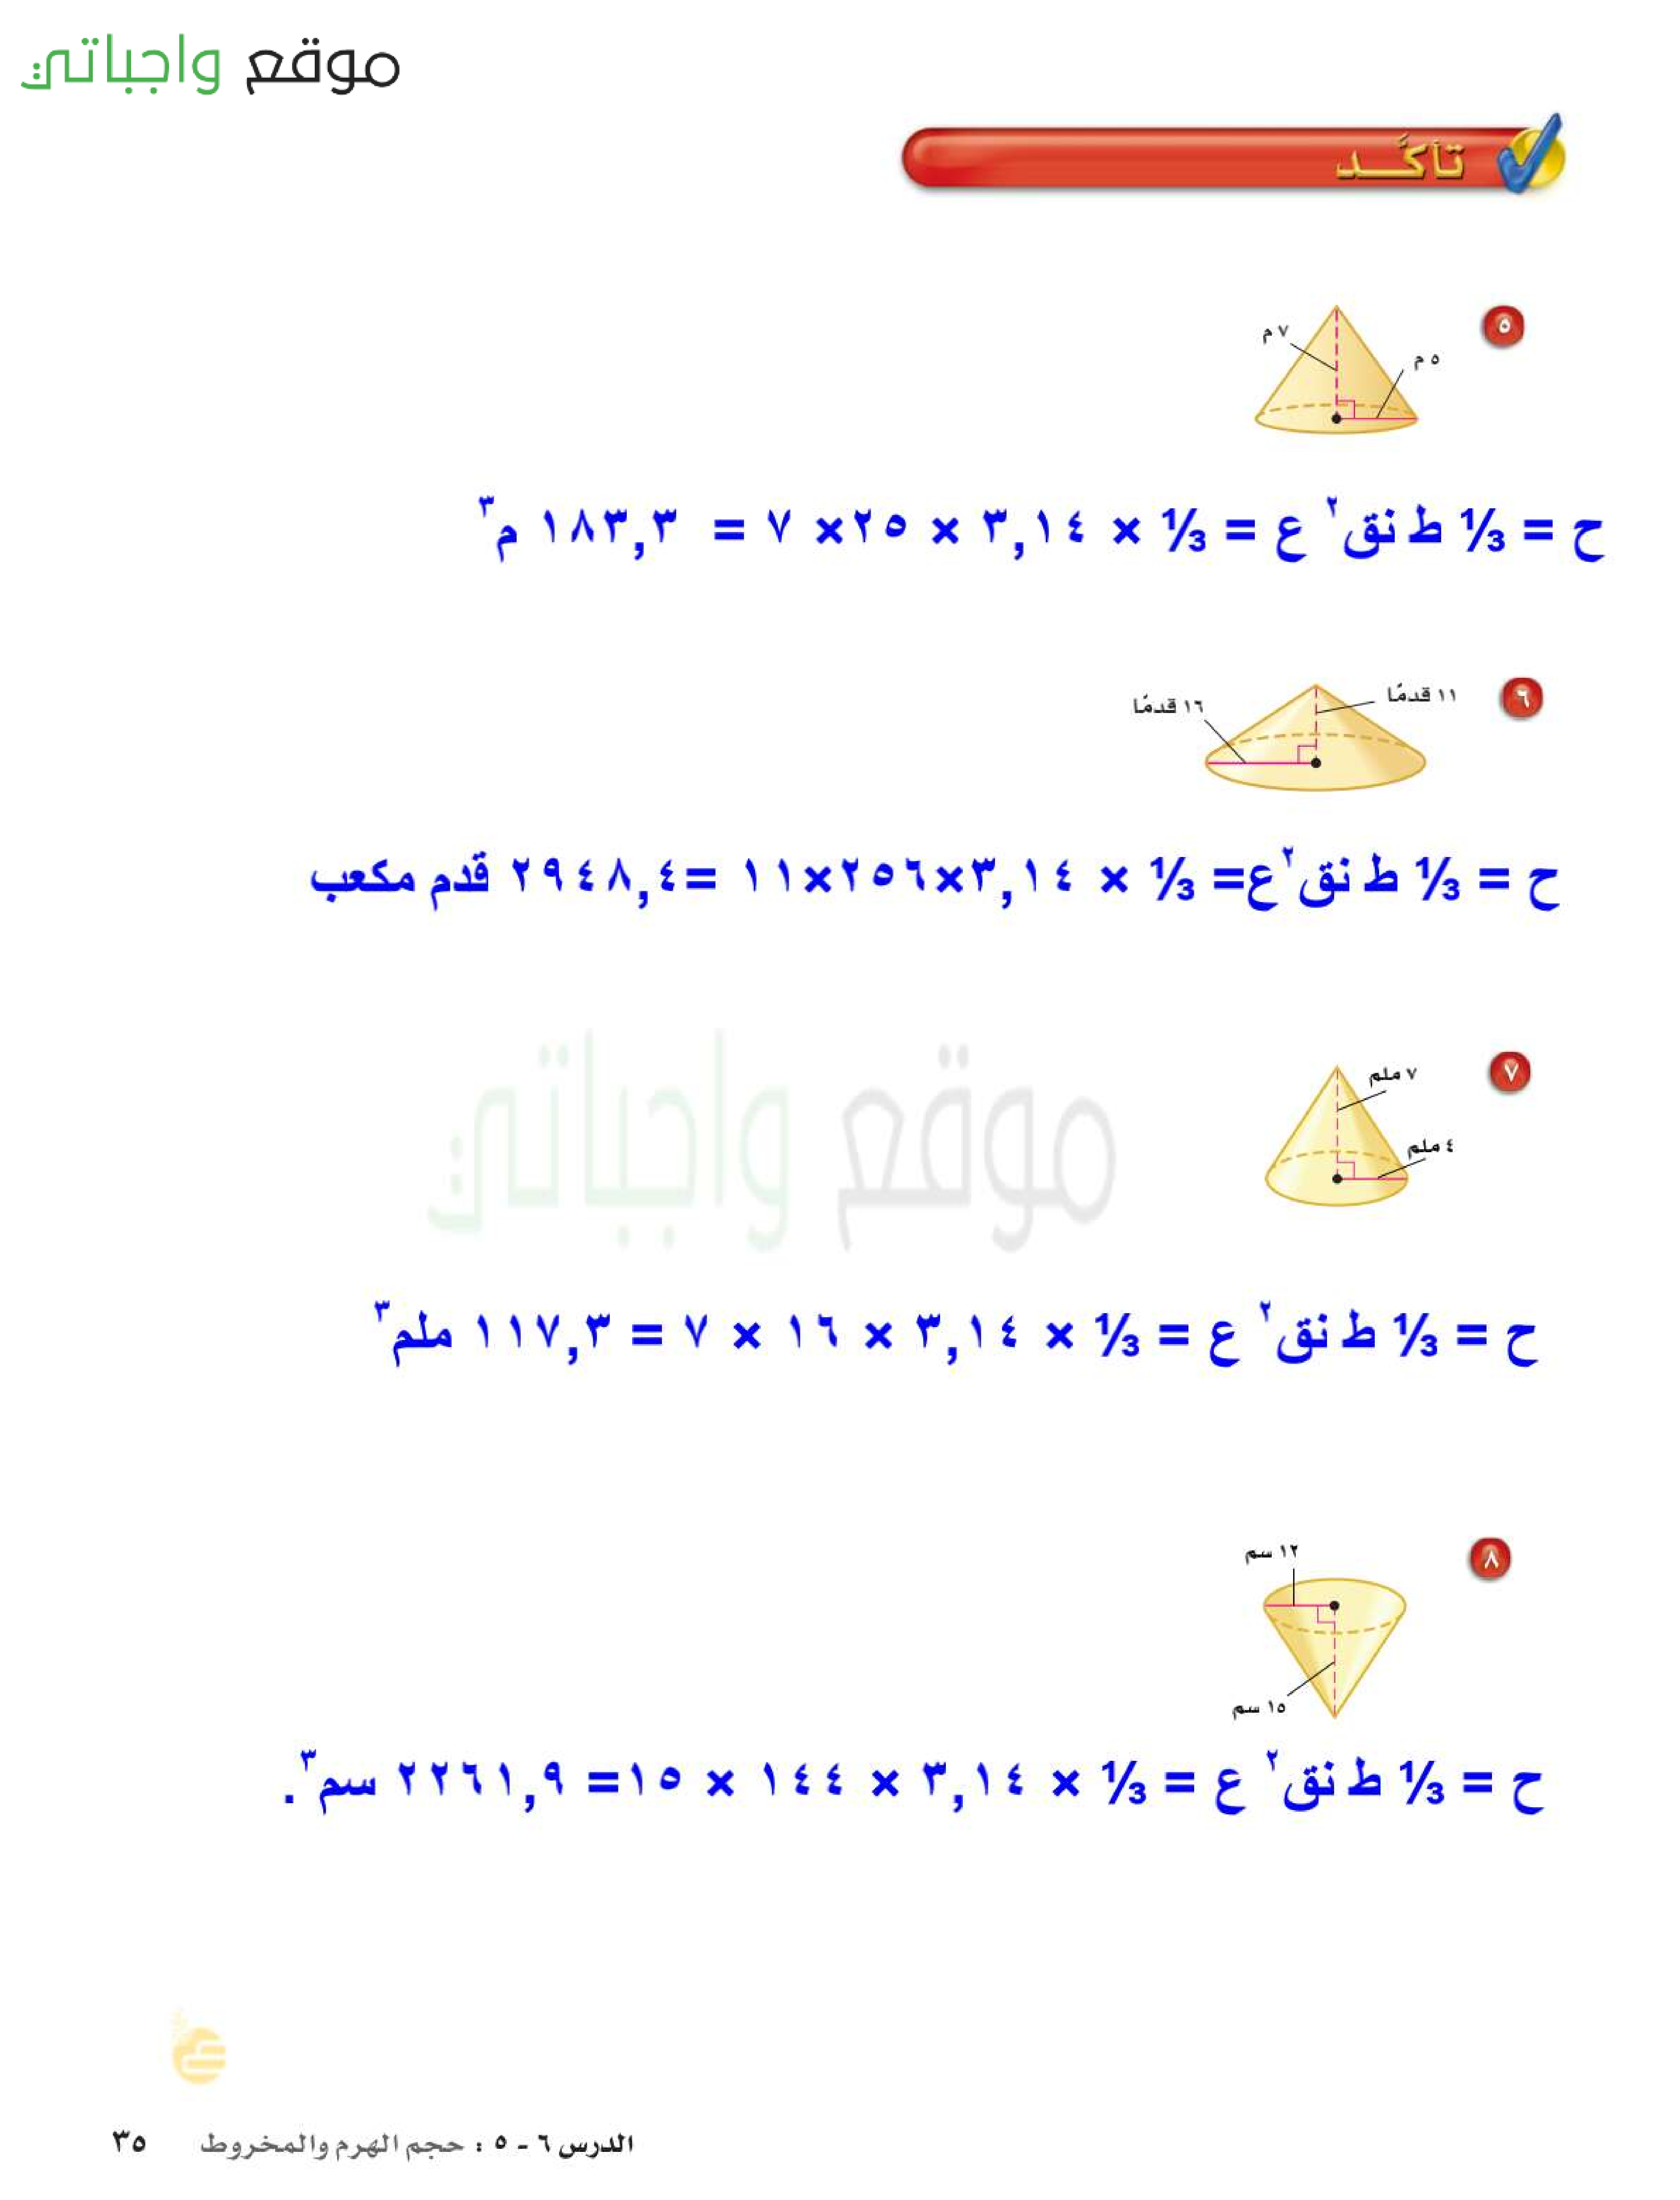 موقع واجباتي
تأكَّد
٥
٧ م
٥ م
ح = ⅓ ط نق² ع = ⅓ × ٣,١٤ × ٢٥ × ٧ = ١٨٣,٣ م³
٦
١١ قدمًا
١٦ قدمًا
ح = ⅓ ط نق² ع = ⅓ × ٣,١٤×٢٥٦×١١ =٢٩٤٨,٤ قدم مكعب
موقع واجباتي
٧
٧ ملم
٤ ملم
ح = ⅓ ط نق² ع = ⅓ × ٣,١٤ × ١٦ × ٧ = ١١٧,٣ ملم³
٨
١٢ سم
١٥ سم
ح = ⅓ ط نق² ع = ⅓ × ٣,١٤ × ١٤٤ × ١٥= ٢٢٦١,٩ سم³.
الدرس ٦ - ٥ : حجم الهرم والمخروط ٣٥